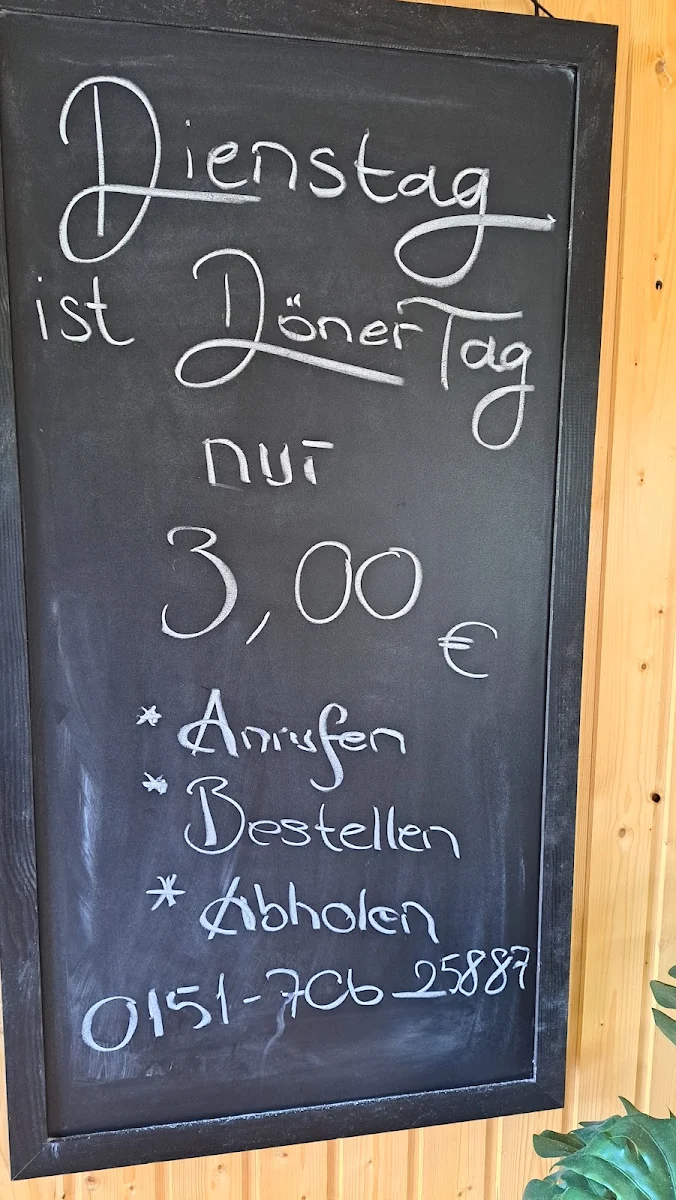 Dienstag
ist Döner Tag
nur
3,00
€
* Anrufen
* Bestellen
* Abholen
0151-706 25887